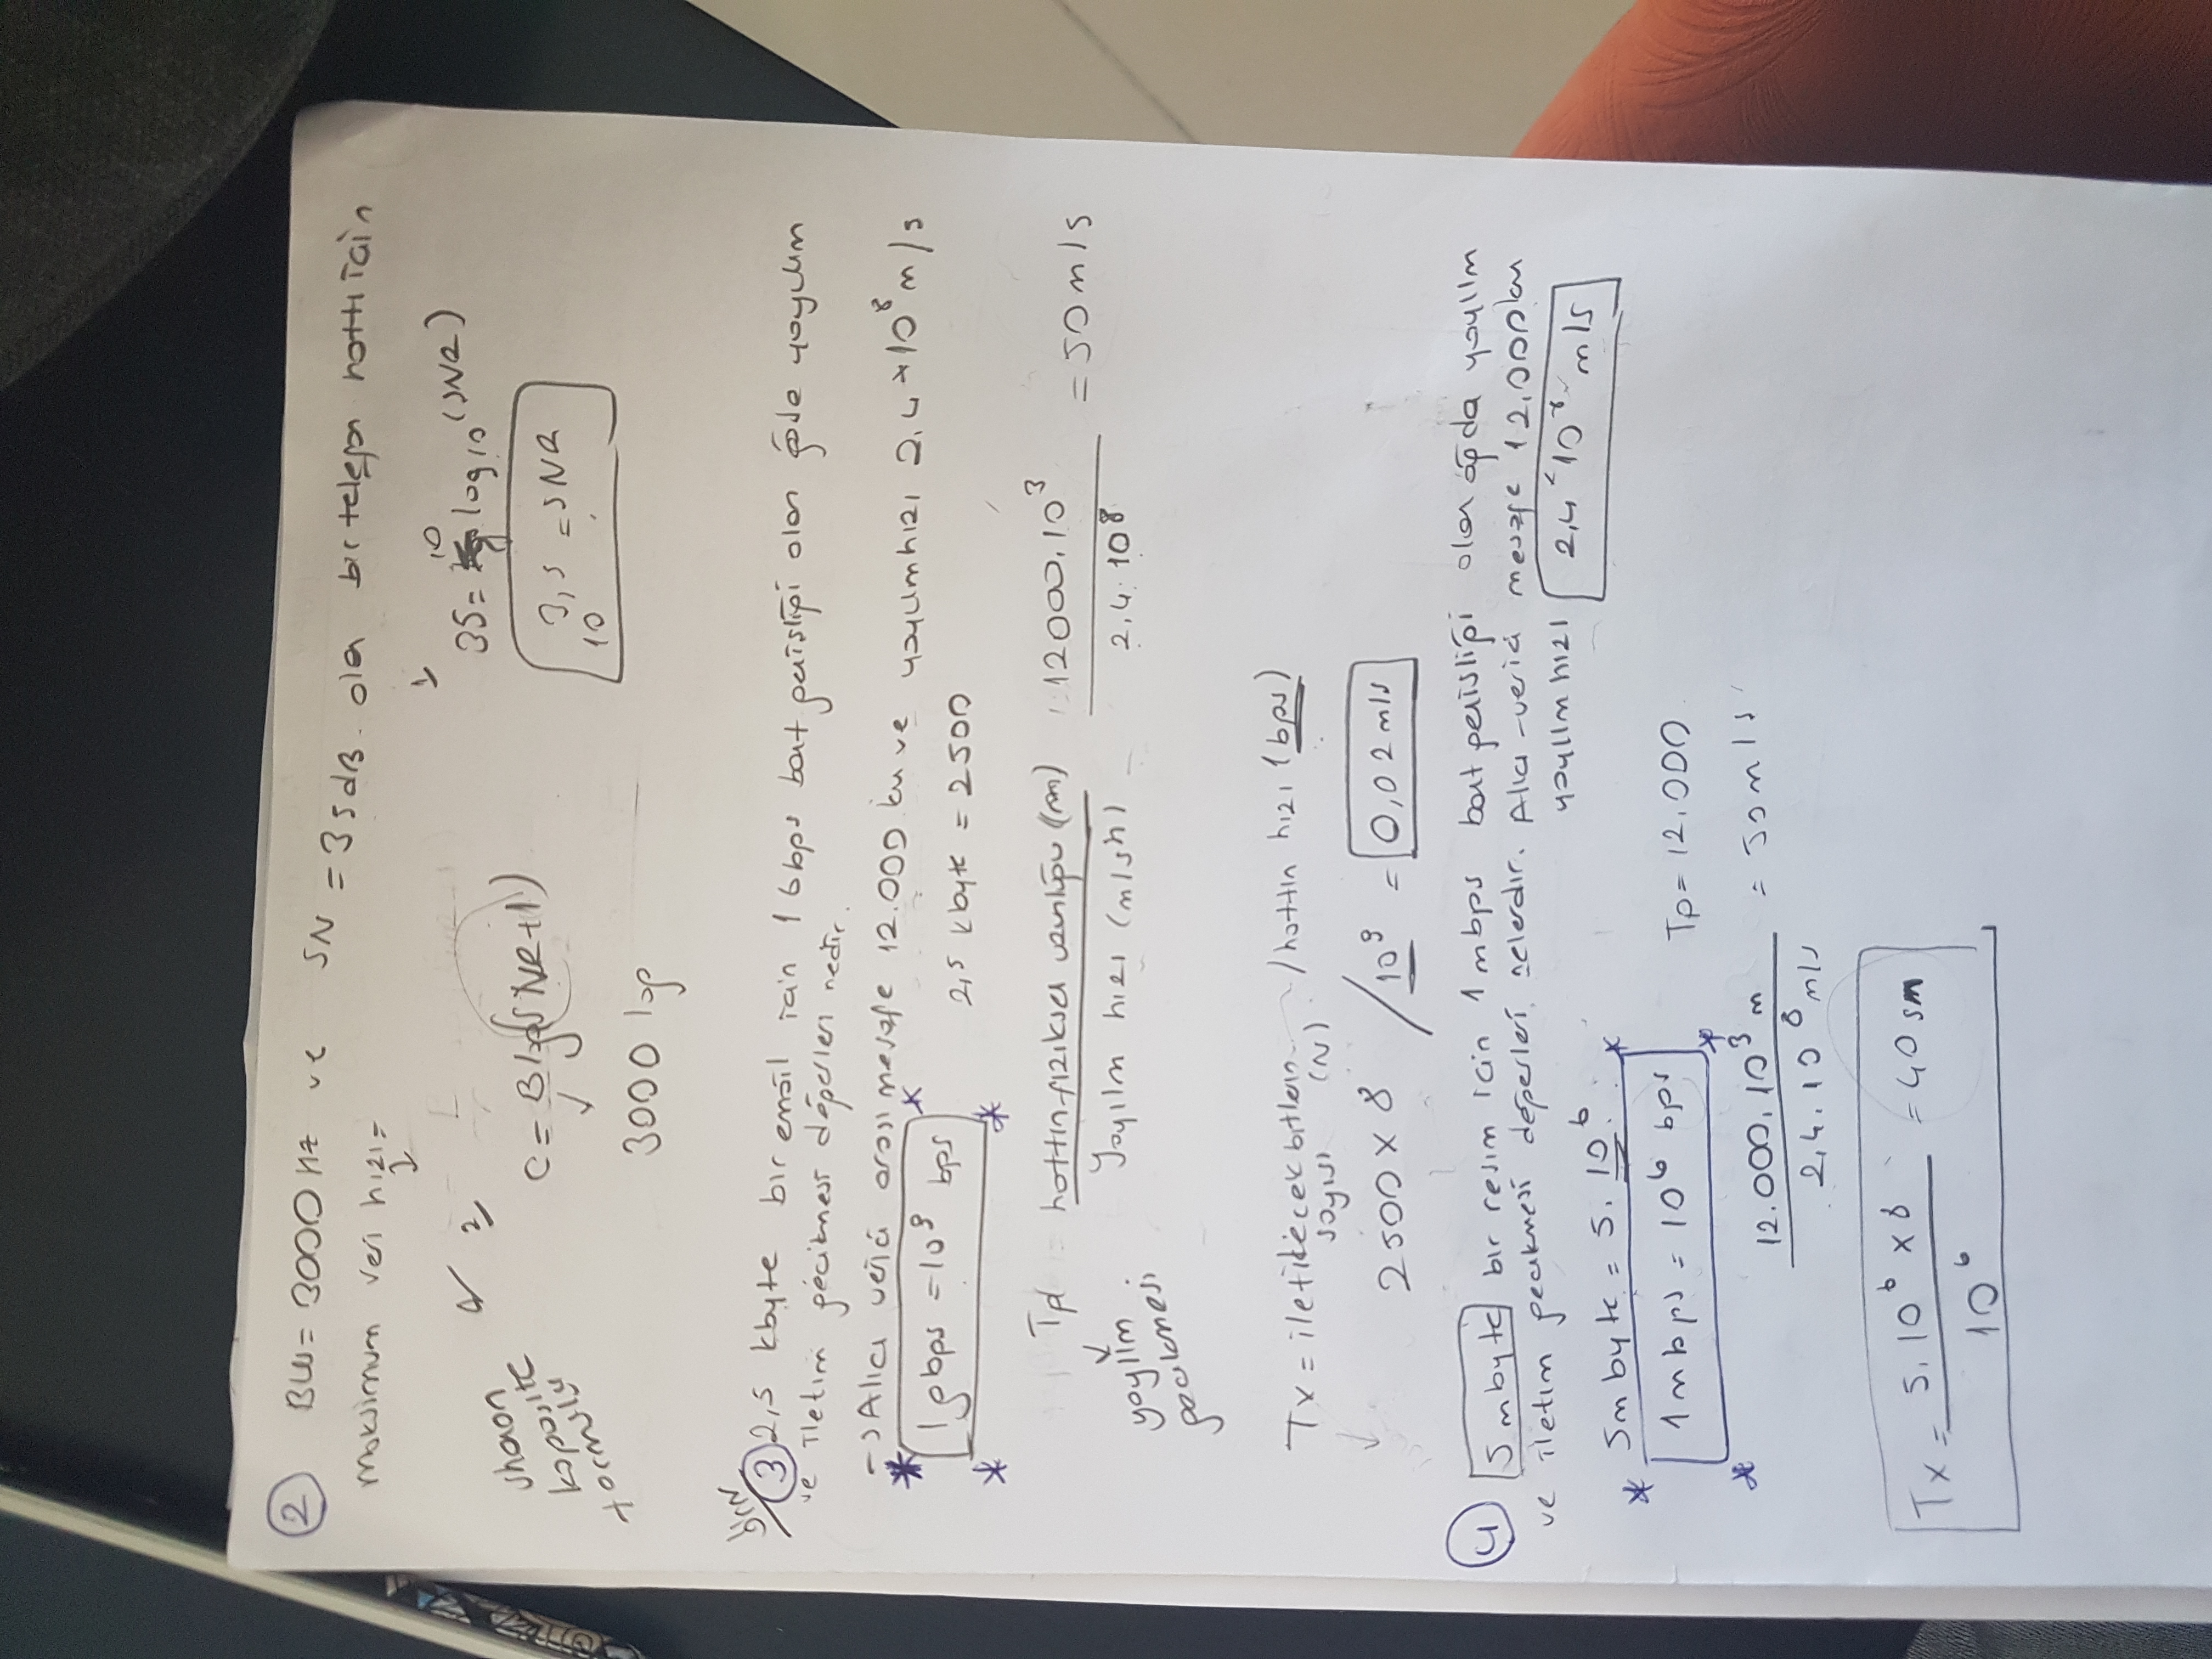 2 BW = 3000 Hz ve SN = 35 dB. olan bir telefon hattı için
maksimum veri hızı =
1
35 = 10 log10 (SNR)
10^3,5 = SNR
shanon
kapasite
formülü
2
C = B log(SNR+1)
3000 log
3 2,5 kbyte bir email için 1 Gbps bant genişliği olan ağda yayılım
ve iletim gecikmesi değerleri nedir.
-> Alıcı verici arası mesafe 12.000 km ve yayılım hızı 2,4 * 10^8 m/s
1 gbps = 10^9 bps
2,5 kbyte = 2500
Tp = hattın fiziksel uzunluğu (m) / Yayılım hızı (m/sn) = 12000.10^3 / 2,4.10^8 = 50 m/s
yayılım
gecikmesi
Tx = iletilecek bitlerin sayısı (N) / hattın hızı (bps)
2500 x 8 / 10^9 = 0,02 m/s
4 5 mbyte bir resim için 1 mbps bant genişliği olan ağda yayılım
ve iletim gecikmesi değerleri nelerdir. Alıcı-verici mesafe 12.000 km
yayılım hızı 2,4 * 10^8 m/s
5 mbyte = 5.10^6
1 mbps = 10^6 bps
Tp = 12.000
12.000.10^3 m / 2,4.10^8 m/s = 50 m/s
Tx = 5.10^6 x 8 / 10^6 = 40 sn